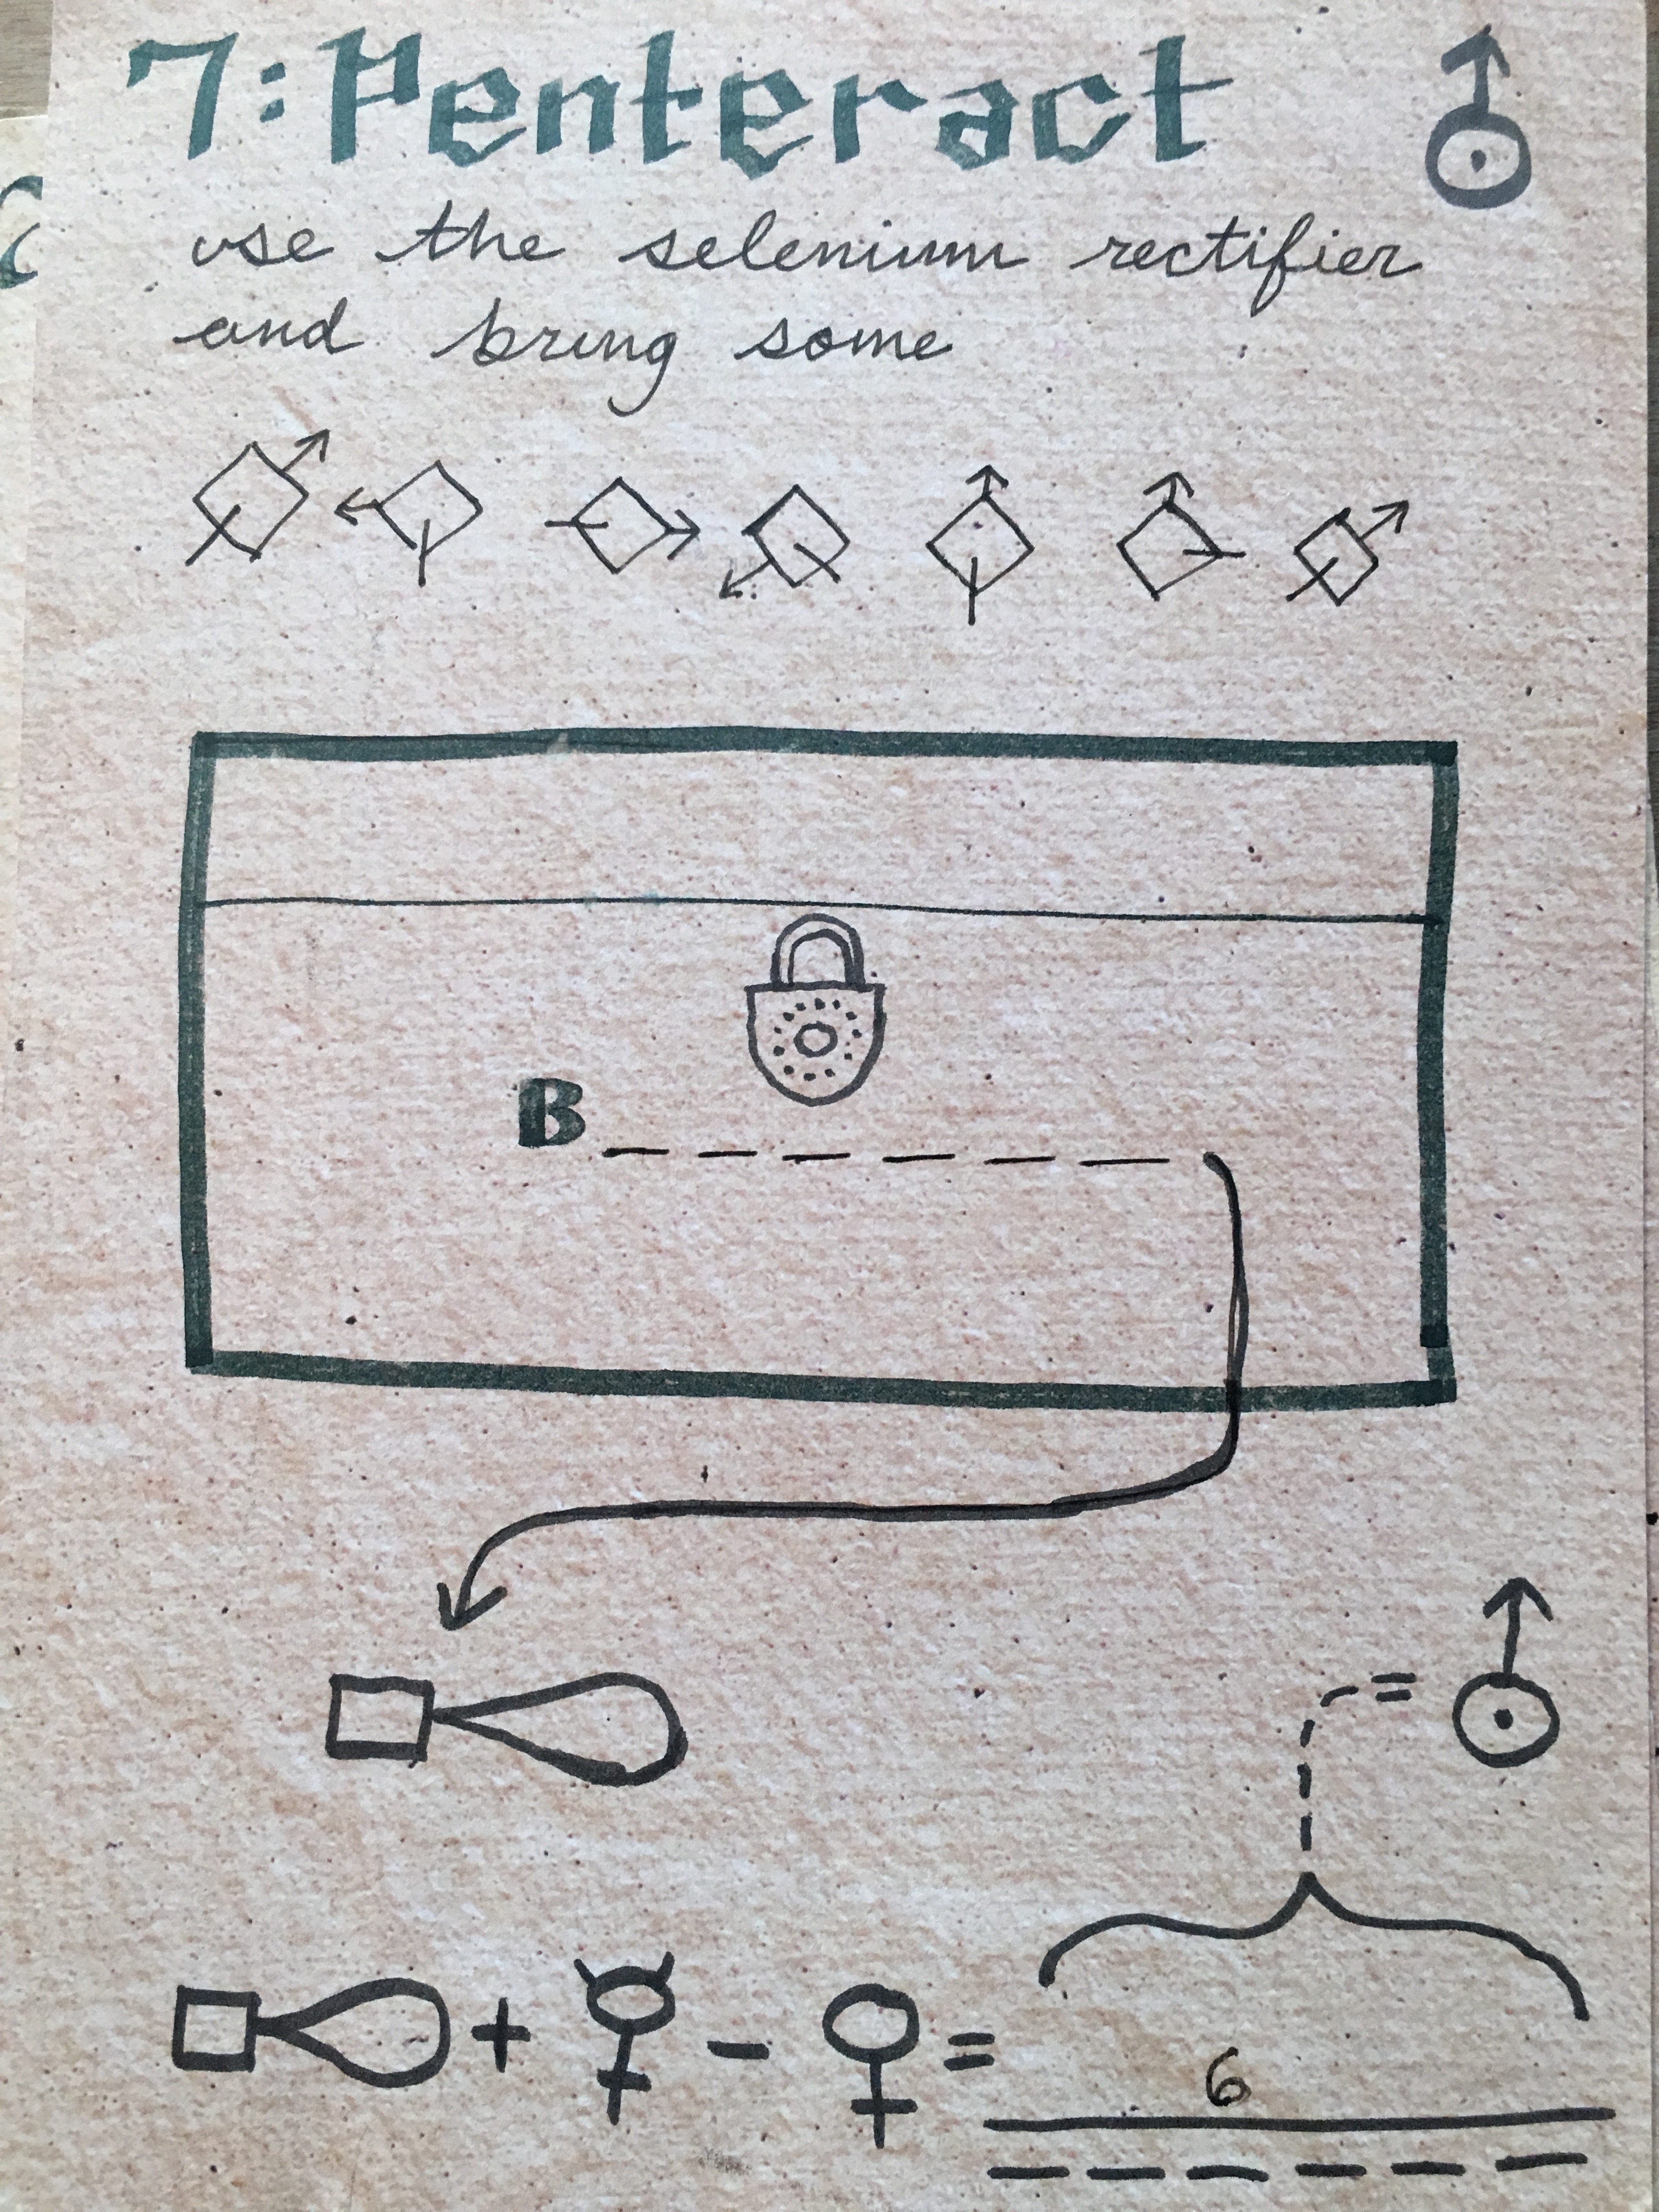 7: Penteract
use the selenium rectifier
and bring some
B _ _ _ _ _ _
=
+ - = 6